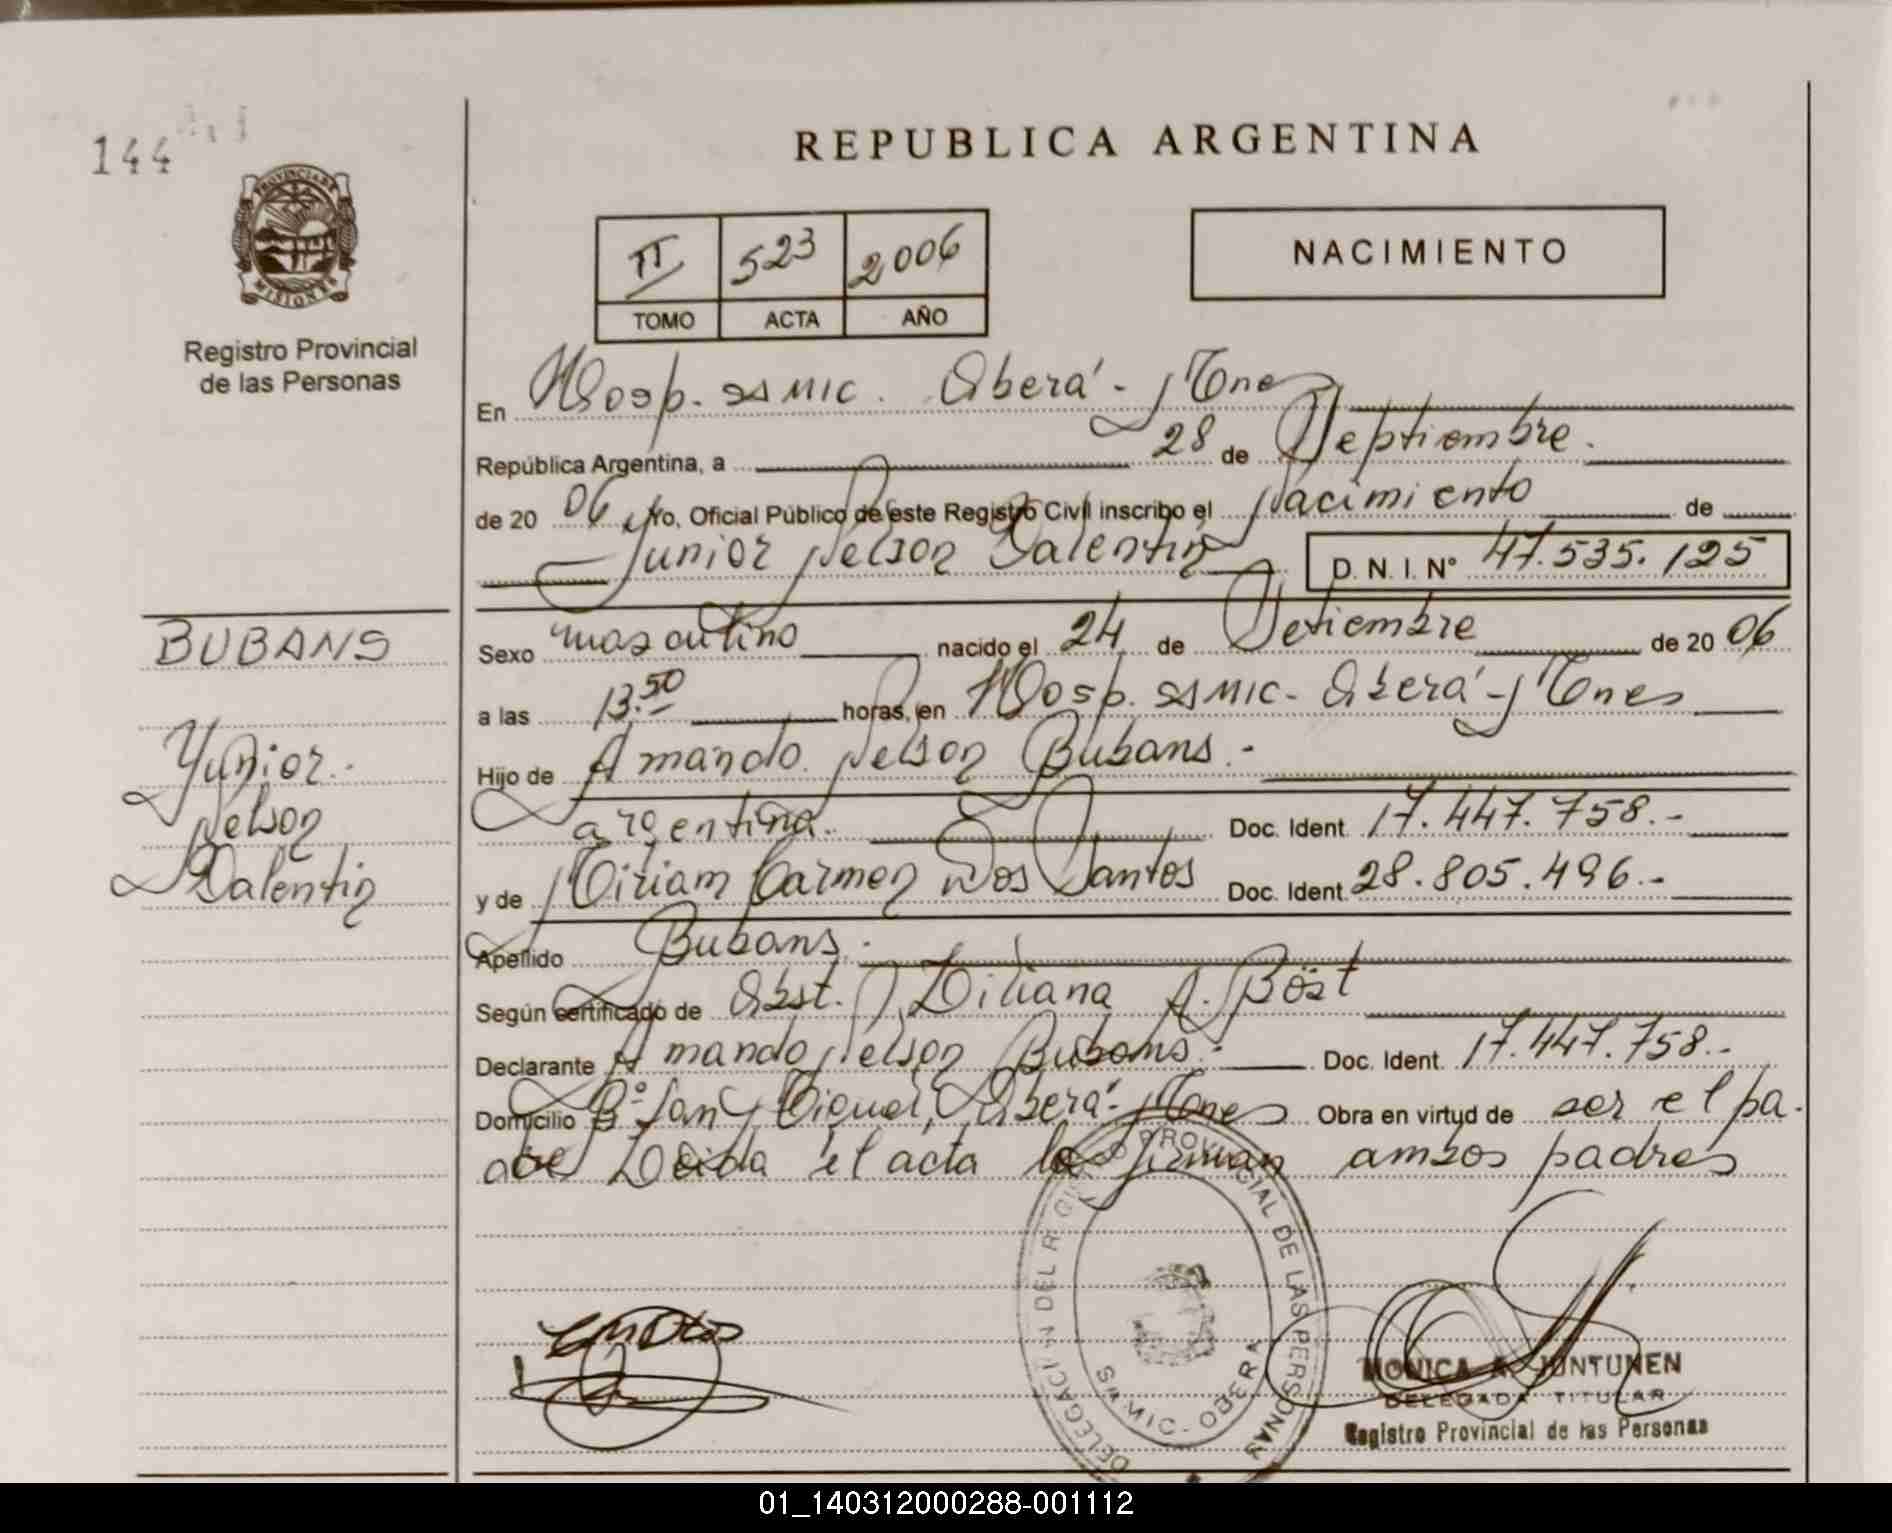 144
REPUBLICA ARGENTINA
PROVINCIA DE
MISIONES
Registro Provincial
de las Personas
II 523 2006
TOMO ACTA AÑO
NACIMIENTO
En Hosp. SAMIC. Oberá - Mnes
República Argentina, a 28 de Septiembre.
de 20 06 Yo, Oficial Público de este Registro Civil inscribo el Nacimiento de
Junior Nelson Valentin D. N. I. Nº 47.535.125
BUBANS
Yunior.-
Nelson
Valentin
Sexo masculino nacido el 24 de Setiembre de 20 06
a las 13.50 horas, en Hosp. SAMIC - Oberá - Mnes
Hijo de Amando Nelson Bubans.-
argentina. Doc. Ident. 17.447.758.-
y de Miriam Carmen Dos Santos Doc. Ident. 28.805.496.-
Apellido Bubans.-
Según certificado de Obst. Liliana A. Böst
Declarante Amando Nelson Bubans.- Doc. Ident. 17.447.758.-
Domicilio Bº San Miguel, Oberá - Mnes Obra en virtud de ser el pa-
dre Leida el acta la firman ambos padres
DELEGACION DEL REGISTRO PROVINCIAL DE LAS PERSONAS
SAMIC - OBERA
MONICA A. JUNTUNEN
DELEGADA TITULAR
Registro Provincial de las Personas
01_140312000288-001112